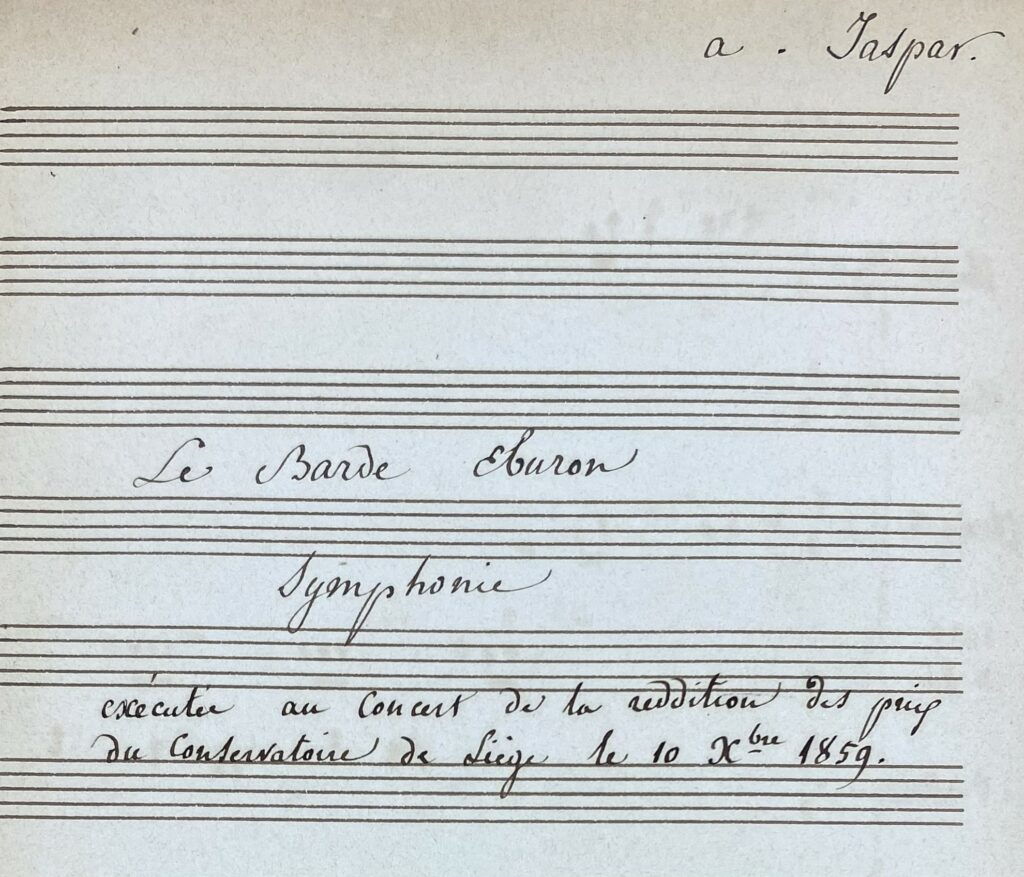 a . Jaspar.
Le Barde Eburon
Symphonie
exécutée au Concert de la reddition des prix
du Conservatoire de Liége le 10 Xbre 1859.